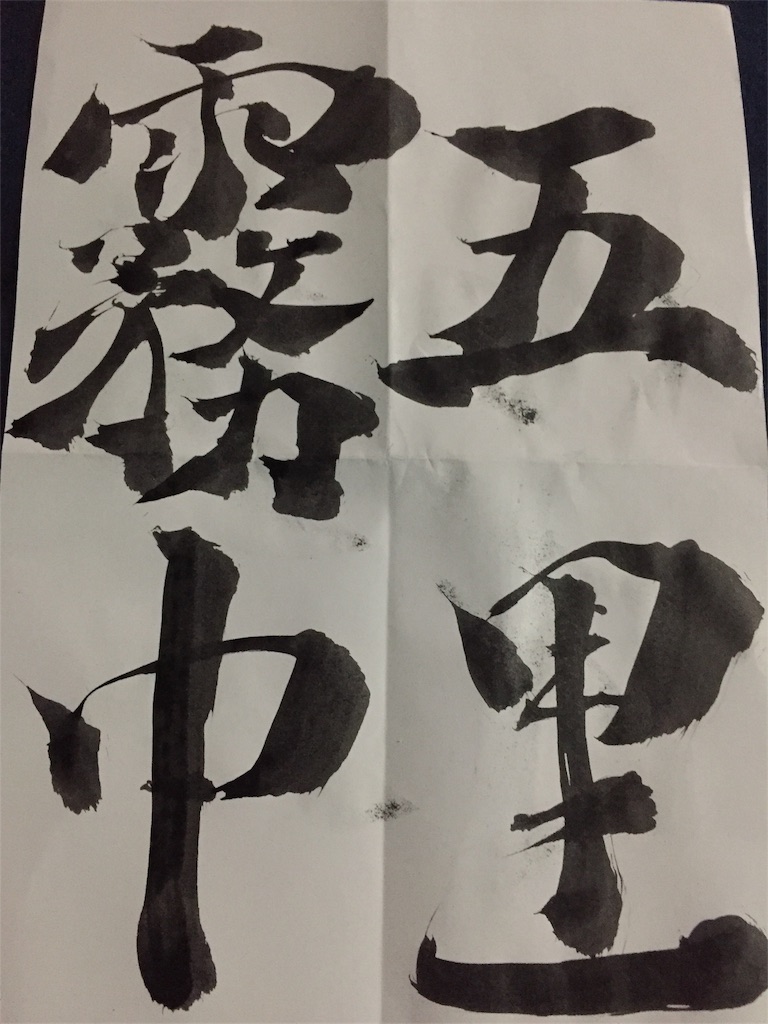 五里
霧中